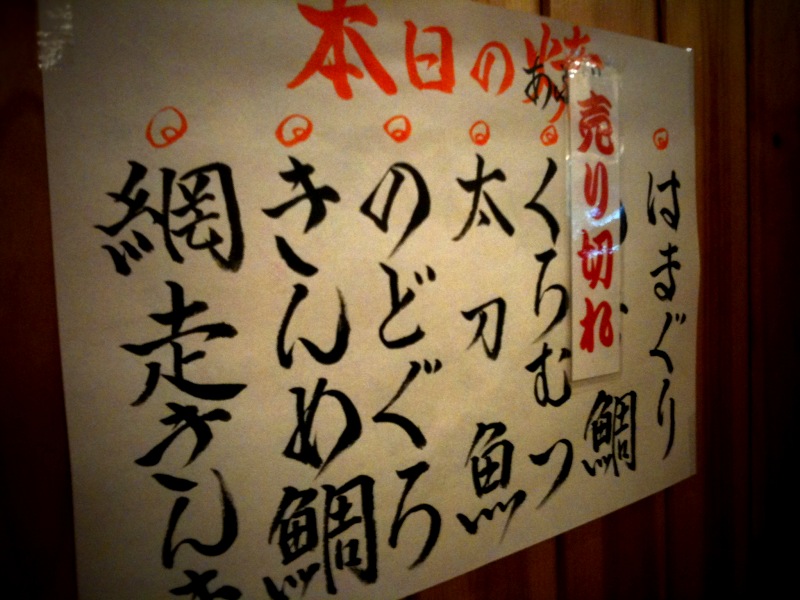 本日の焼
はまぐり
売り切れ
鯛
くろむつ
太刀魚
のどぐろ
きんめ鯛
網走きんき